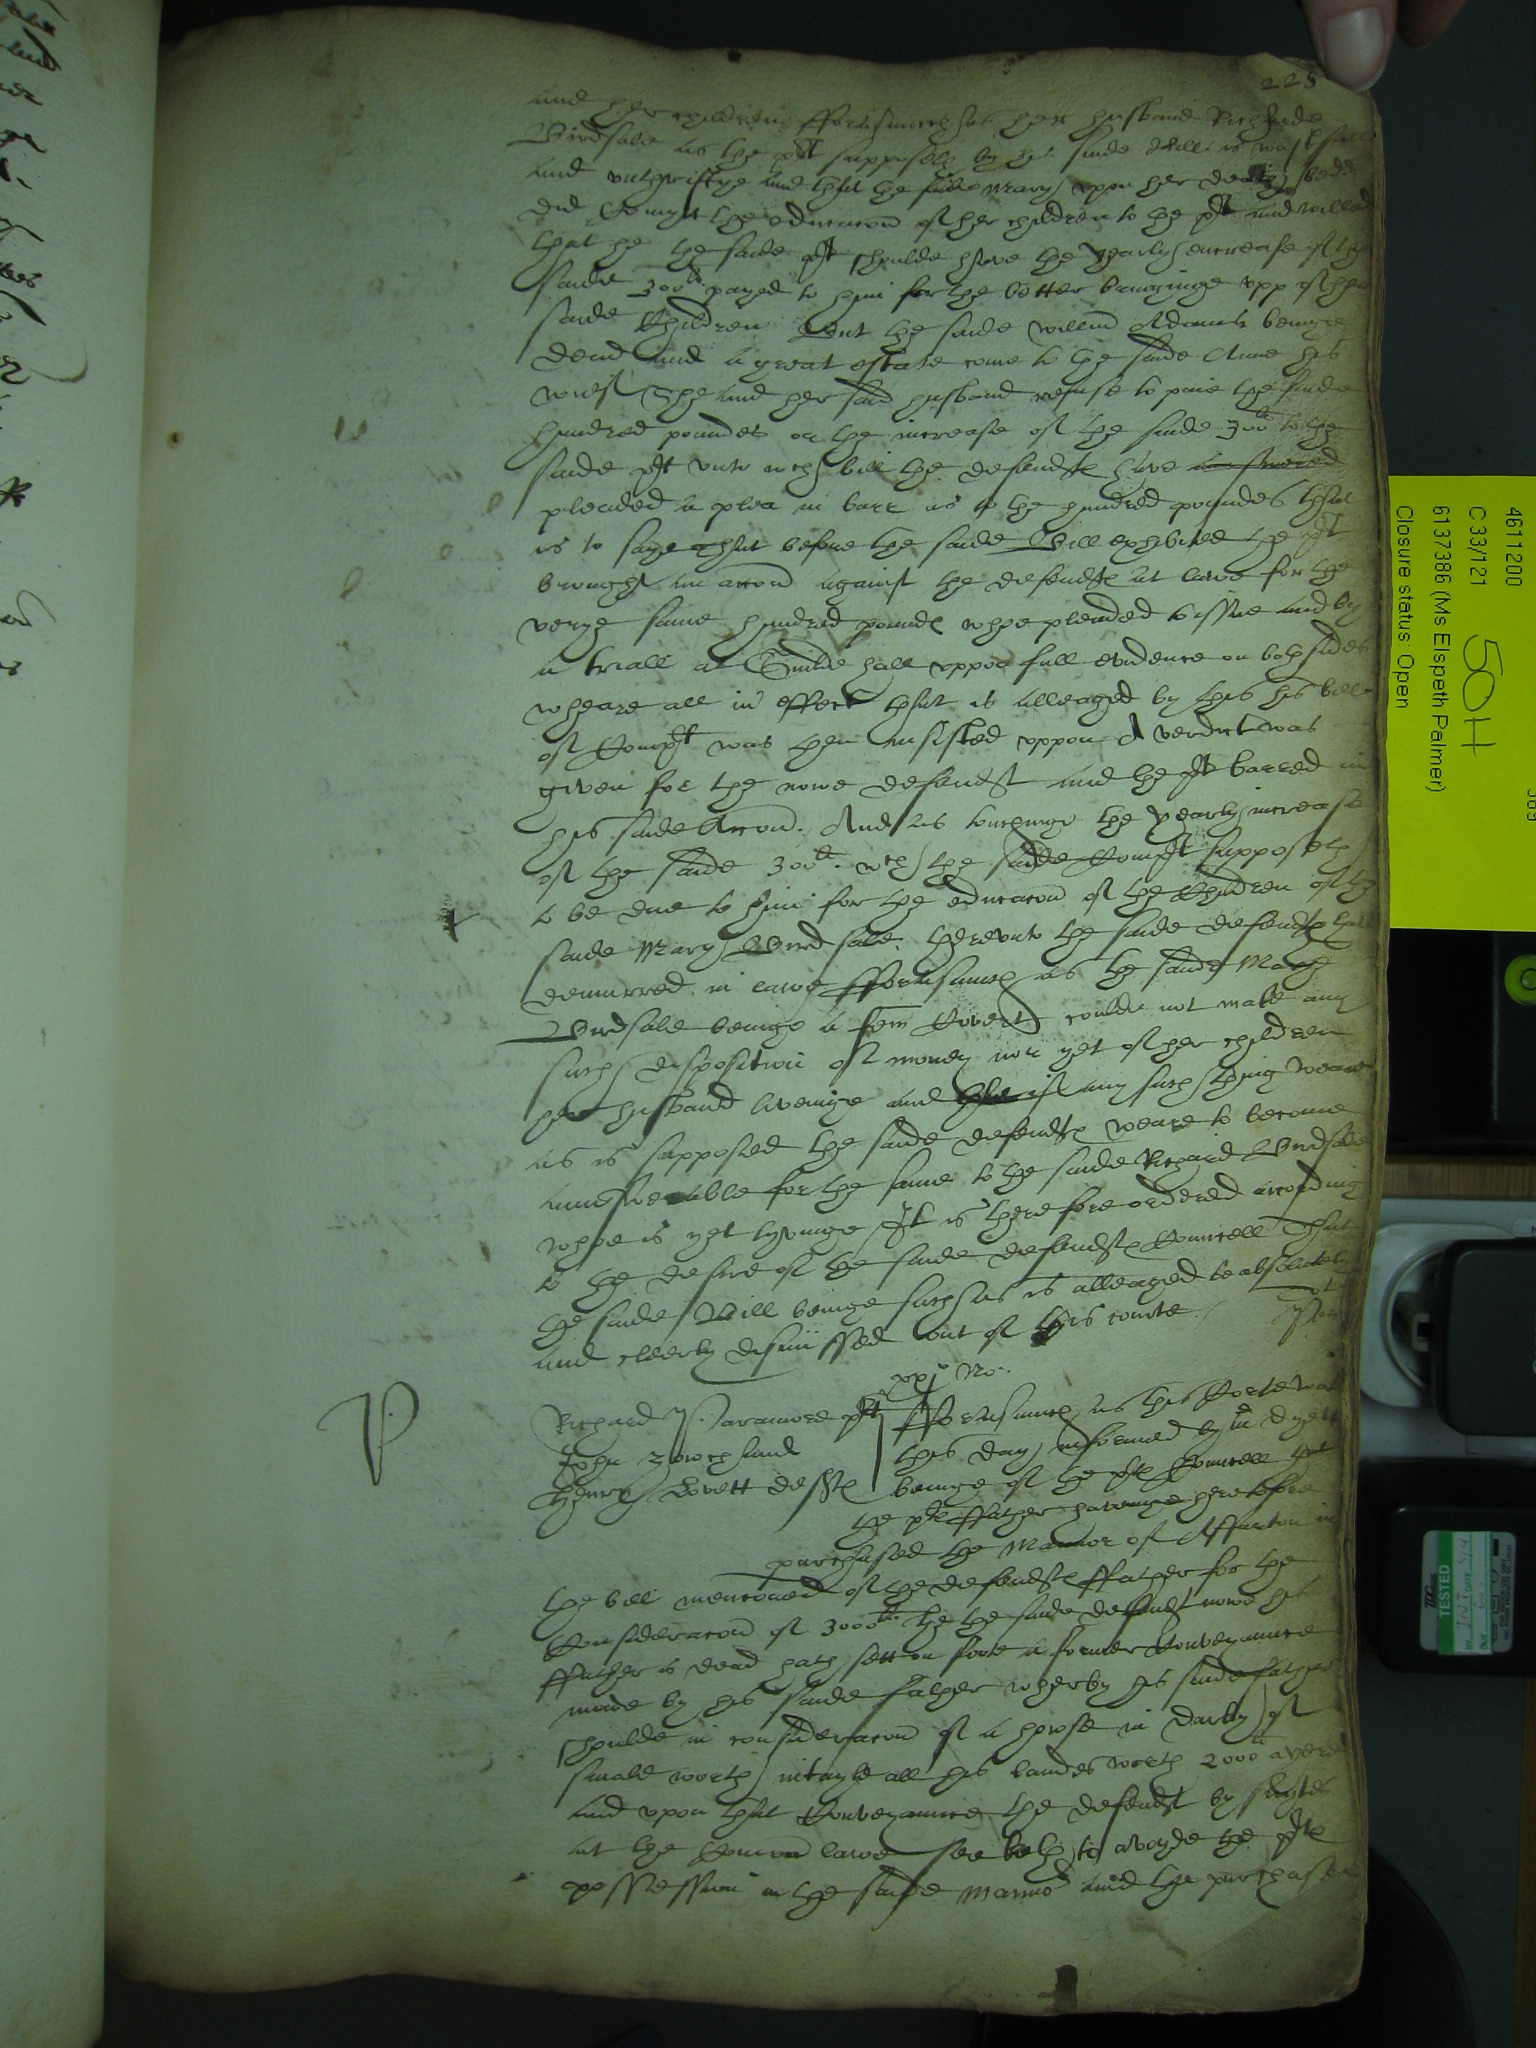 225
and her children fforasmuch as her husband Richarde
Birdsale as the plt supposeth by his saide bill is wastfull
and unthriftye and that the saide Mary upon her death bedd
did Comytt the educacon of her children to the plt and willed
that he the saide plt shoulde have the yearly encrease of the
saide 300li payed to him for the better bringinge upp of her
saide Children But the saide Willm Adams beinge
dead and a great estate come to the saide Anne his
wief She and her said husband refuse to paie the saide
hundred poundes or the increase of the saide 300li to the
saide plt unto wch bill the defendtes have answered
pleaded a plea in barr as to the hundred poundes that
is to saye that before the saide Bill exhibited the plt
brought an accon against the defendtes at lawe for the
verye same hundred poundes whoe pleaded to issue and by
a triall at Guilde hall uppon full evidence on both sides
wheare all in effect that is alleaged by this his bill
of Complt was then insisted uppon A verdict was
given for the nowe defendt and the plt barred in
his saide Accon. And as touchinge the yearly increase
of the saide 300li. wch the saide Complt supposeth
to be due to him for the educacon of the Children of the
saide Mary Birdsale. thereunto the saide defendtes have
demurred in lawe fforasmuch as the saide Mary
Birdsale beinge a fem Covert coulde not make any
such disposition of money nor yet of her children
her husband liveinge and that if any such thing weare
as is supposed the saide defendtes weare to become
answearable for the same to the saide Richard Birdsale
whoe is yet lyvinge It is therefore ordered according
to the desire of the saide defendtes Councell That
the saide Bill beinge such as is alleaged be absolutely
and cleerly dismissed out of this courte
xxjo No.
P
Richard Paramore plt
John
Henry Lovett deftes
fforasmuch as this Corte was
this day informed by Mr Dyett
beinge of the pltes Councell that
the pltes ffather haveinge heretofore
purchased the Mannor of Assarton in
the bill mencioned of the defendtes ffather for the
Consideracon of 3000li. the the saide defendt nowe his
ffather is dead hath sett on foote a former Conveyance
made by his saide father wherby his saide father
shoulde in consideracon of a howse in Darby of
smale worth intayle all his landes worth 2000li a yere
and upon that Conveyance the defendt by suytes
at the Comon lawe seeketh to avoyde the pltes
possession in the saide Mannor and the purchase
4611200
C 33/121
50H
6137386 (Ms Elspeth Palmer)
Closure status: Open
TESTED